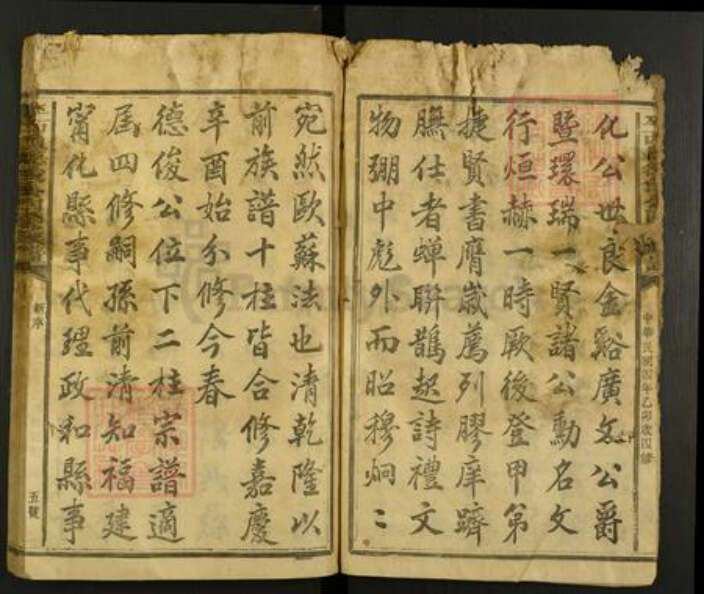 化公世良金谿廣文公爵
暨環瑞一賢諸公勳名文
行烜赫一時厥後登甲第
捷賢書膺歲薦列膠庠躋
膴仕者蟬聯鵲起詩禮文
物弸中彪外而昭穆炯〻
中華民國四年乙卯歲四修
宛然歐蘇法也清乾隆以
前族譜十柱皆合修嘉慶
辛酉始分修今春
德俊公位下二柱宗譜適
屆四修嗣孫前清知福建
甯化縣事代理政和縣事
新序
五號